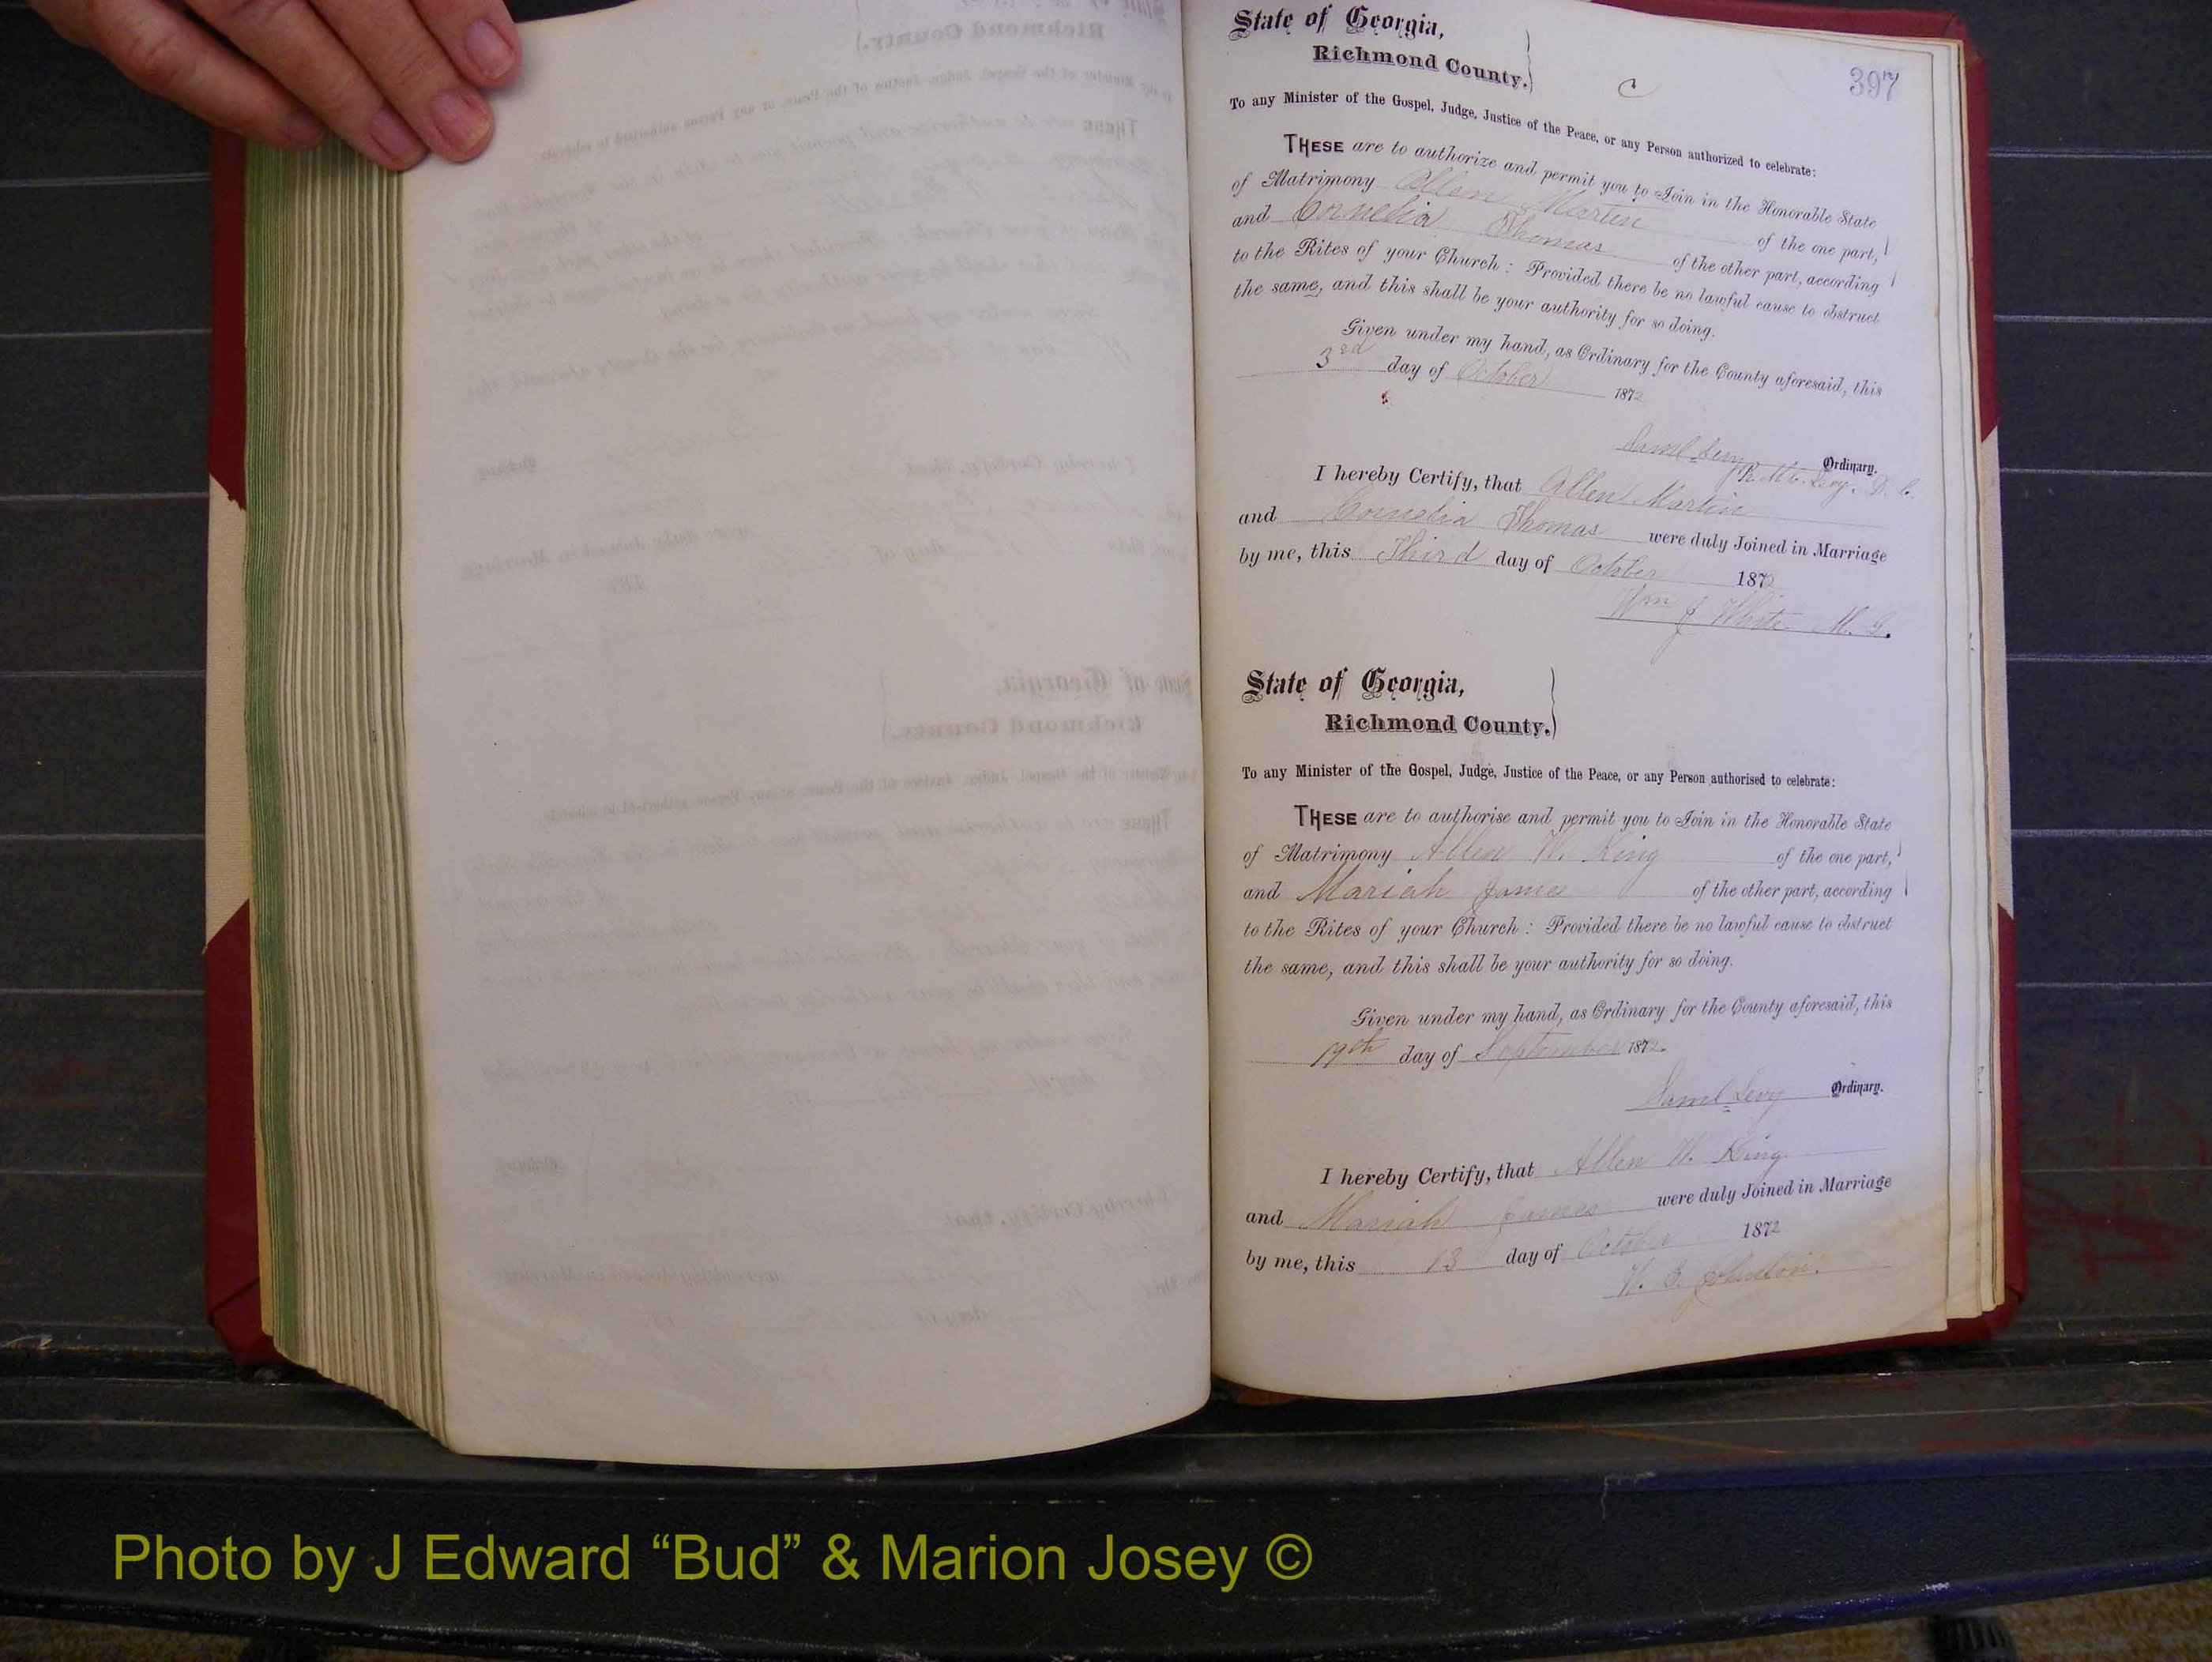 397
State of Georgia,
Richmond County.
C
To any Minister of the Gospel, Judge, Justice of the Peace, or any Person authorized to celebrate:
THESE are to authorize and permit you to Join in the Honorable State
of Matrimony Allen Martin of the one part,
and Cornelia Thomas of the other part, according
to the Rites of your Church: Provided there be no lawful cause to obstruct
the same, and this shall be your authority for so doing.
Given under my hand, as Ordinary for the County aforesaid, this
3rd day of October 1872
Saml Levy Ordinary.
Levy, D. C.
I hereby Certify, that Allen Martin
and Cornelia Thomas were duly Joined in Marriage
by me, this Third day of October 1872
Wm J White M. G.
State of Georgia,
Richmond County.
To any Minister of the Gospel, Judge, Justice of the Peace, or any Person authorised to celebrate:
THESE are to authorise and permit you to Join in the Honorable State
of Matrimony Allen W. King of the one part,
and Mariah James of the other part, according
to the Rites of your Church: Provided there be no lawful cause to obstruct
the same, and this shall be your authority for so doing.
Given under my hand, as Ordinary for the County aforesaid, this
19th day of September 1872.
Saml Levy Ordinary.
I hereby Certify, that Allen W. King
and Mariah James were duly Joined in Marriage
by me, this 13 day of October 1872
Johnston.
Photo by J Edward “Bud” & Marion Josey ©